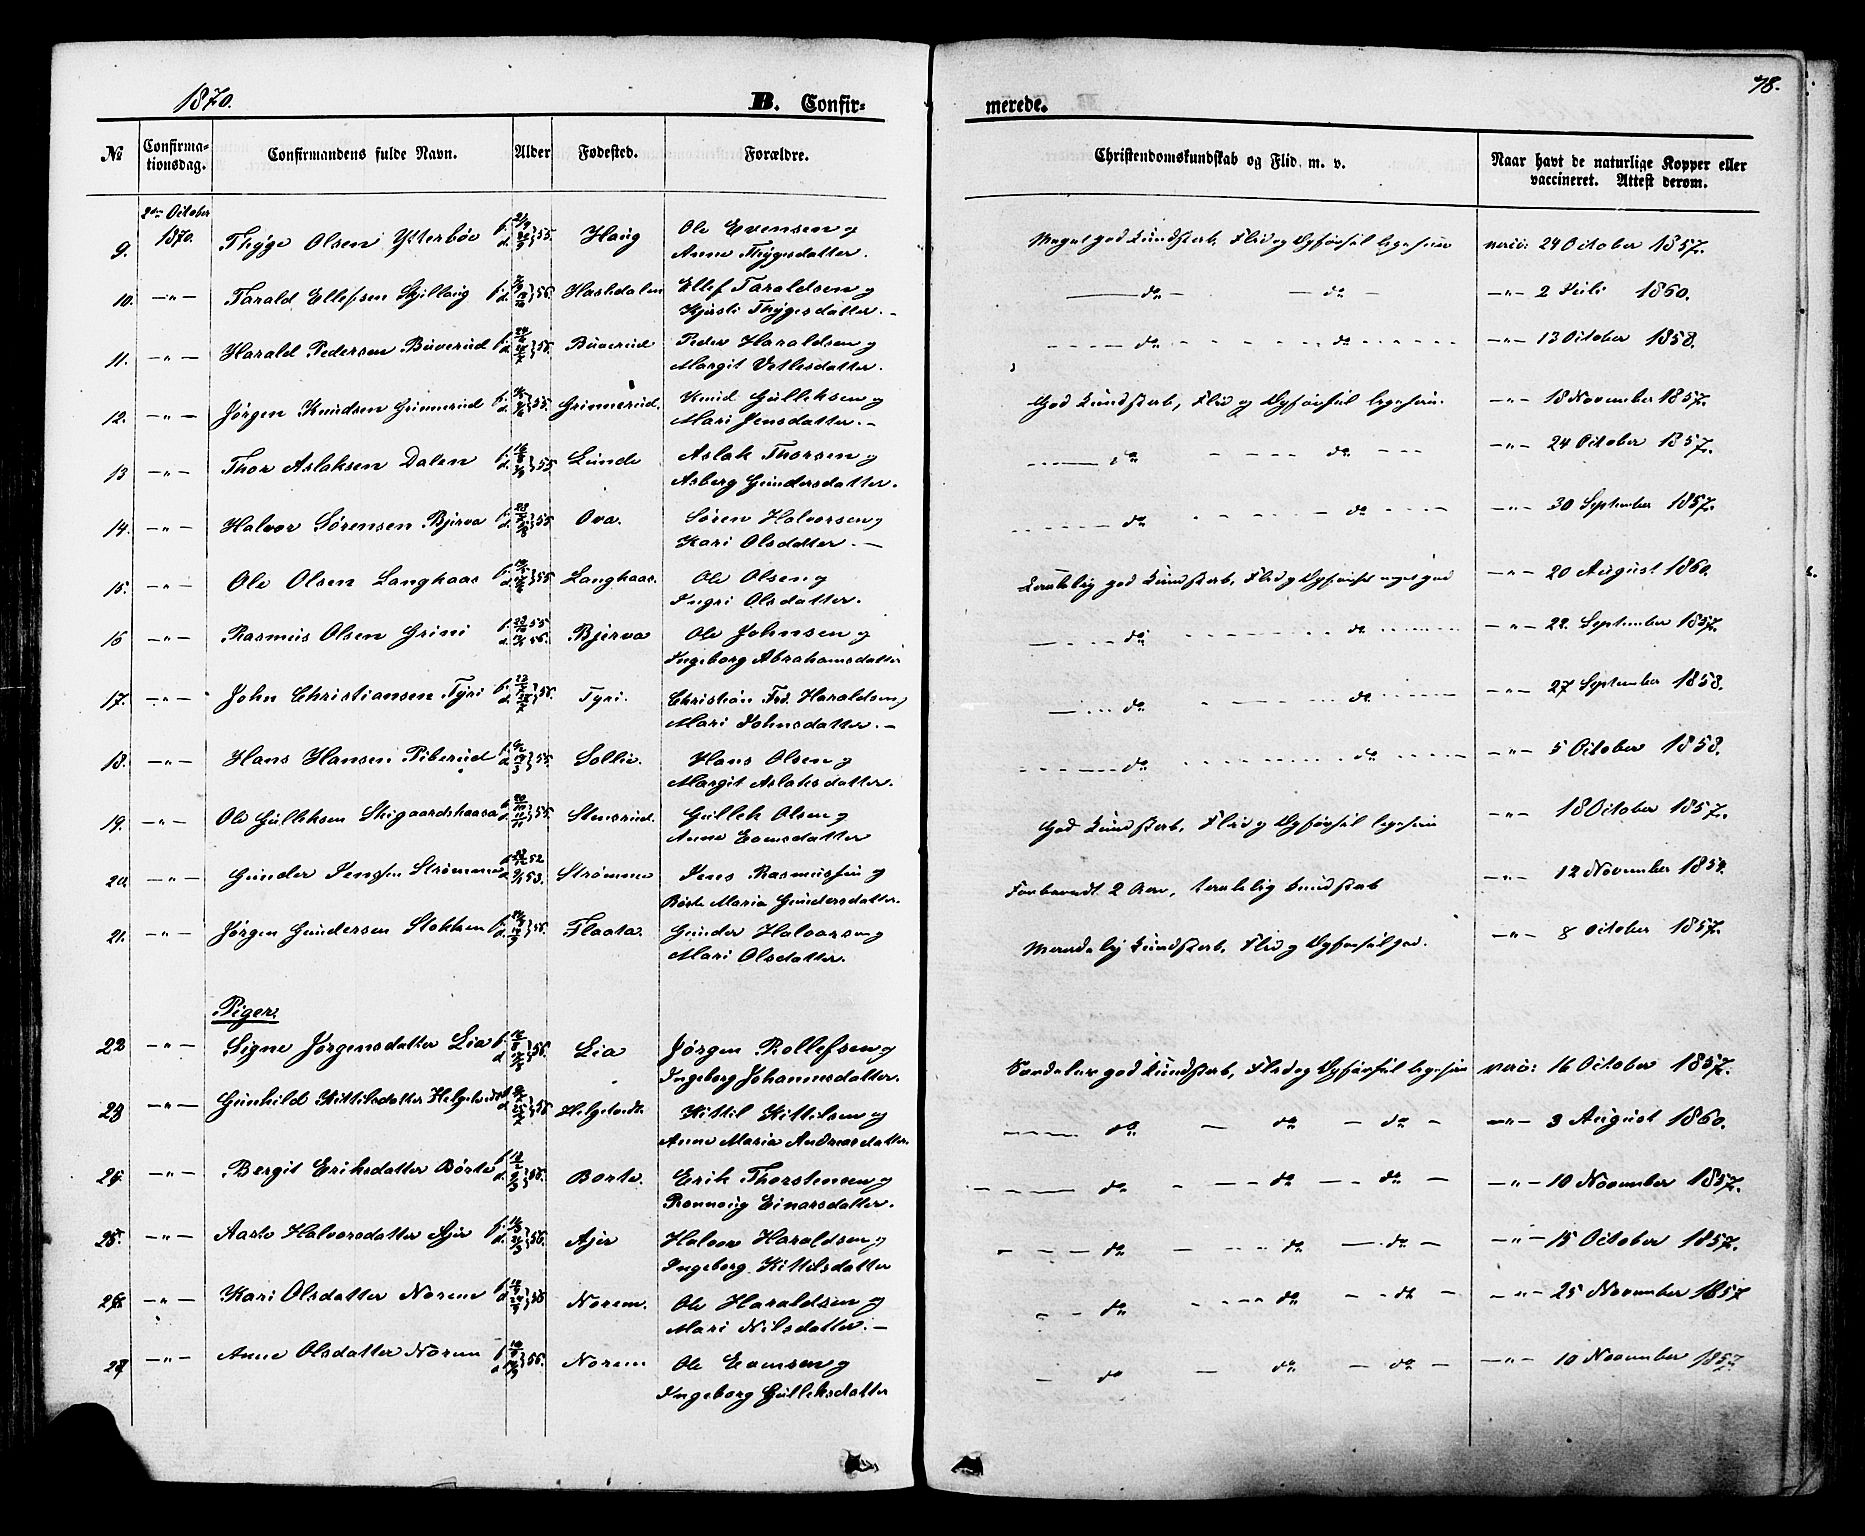 1870.
B. Confir-
merede.
78.
№
Confirma-
tionsdag.
Confirmandens fulde Navn.
Alder
Fødested.
Forældre.
Christendomskundskab og Flid m. v.
Naar havt de naturlige Kopper eller
vaccineret. Attest derom.
2den October
1870.
9. Thyge Olsen Ytterböe 55. Haug Ole Evensen og
Anne Thygesdatter.
Meget god Kundskab, Flid og Opførsel ligesaa vacc: 24 October 1857.
10. —„— Tarald Ellefsen Skjillaug 56. Hasledalen Ellef Taraldsen og
Kjersti Thygesdatter.
do do —„— 2 Juli 1860.
11. —„— Harald Pedersen Buverud 56. Buverud Peder Haraldsen og
Margit Vetlesdatter.
do do —„— 13 October 1858.
12. —„— Jörgen Knudsen Grimerud 55. Grimerud. Knud Gulleksen og
Mari Jensdatter.
God Kundskab, Flid og Opførsel ligesaa. —„— 18 November 1857.
13 —„— Thor Aslaksen Dalen 55 Lunde Aslak Thorsen og
Asberg Gundersdatter.
do do —„— 24 October 1857.
14. —„— Halvor Sørensen Bjerva 55 Ova. Søren Halvorsen og
Kari Olsdatter.
do do —„— 30 September 1857.
15. —„— Ole Olsen Langhaas 55. Langhaas. Ole Olsen og
Ingri Olsdatter.
Temmelig god Kundskab, Flid og Opførsel meget god —„— 20 August 1860.
16 —„— Rasmus Olsen Grini 55 56. Bjerva Ole Johnsen og
Ingeborg Abrahamsdatter
do do —„— 22. September 1857.
17. —„— John Christiansen Tyri 56. Tyri. Christian Fred. Haraldsen og
Mari Johnsdatter.
do do —„— 27 September 1858.
18. —„— Hans Hansen Piberud 55. Sollie. Hans Olsen og
Margit Aslaksdatter.
do do —„— 5 October 1858.
19. —„— Ole Gulleksen Skigaardshaasa 55. Stensrud. Gullek Olsen og
Anne Evensdatter
God Kundskab, Flid og Opførsel ligesaa —„— 18 October 1857.
20. —„— Gunder Jensen Strømme 52 53. Strømme Jens Rasmussen og
Børte Maria Gundersdatter.
2 Aar, temmelig Kundskab —„— 12 November 1853.
21. —„— Jørgen Gundersen Stokken 56. Flaata. Gunder Halvorsen og
Mari Olsdatter.
Maadelig Kundskab, Flid og Opførsel god. —„— 8 October 1857.
Piger.
22 —„— Signe Jørgensdatter Lia 56. Lia Jørgen Rollefsen og
Ingeborg Johannesdatter.
Særdeles god Kundskab, Flid og Opførsel ligesaa vacc: 16 October 1857.
23 —„— Gunhild Kittilsdatter Helgetvedt 56 Helgetvedt. Kittil Kittilsen og
Anne Maria Andreasdatter.
do do do —„— 3 August 1860.
24. —„— Bergit Eriksdatter Börte 56. Borte. Erik Thorstensen og
Ronnoug Einarsdatter.
do do do —„— 10 November 1857.
25. —„— Aaste Halvorsdatter Ajer 56. Ajer Halvor Haraldsen og
Ingeborg Kittilsdatter
do do do —„— 15 October 1857.
26. —„— Kari Olsdatter Norem 56 Norem. Ole Haraldsen og
Mari Nilsdatter.
do do do —„— 25 November 1857
27 —„— Anne Olsdatter Norem 56. Norem Ole Evensen og
Ingeborg Gulleksdatter
do do do —„— 10 November 1857.